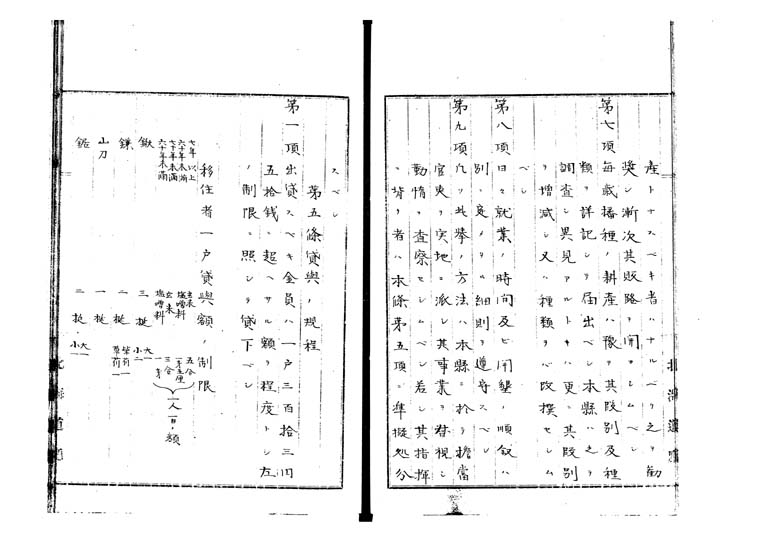 産トナスベキ者ハナルベク之ヲ勧
奨シ漸次其販路ヲ開カシムベシ
第七項毎歳播種ノ耕産ハ豫ヲ其段別及種
類ヲ詳記シヲ届出ベシ本縣ハ之ヲ
調査シ異見アルトキハ更ニ其段別
ヲ増減シ又ハ種類ヲバ改撰セシム
ベシ
第八項日々就業ノ時間及ビ開墾ノ順叙ハ
別ニ定メタル細則ヲ遵守スベシ
第九項凡ソ此挙ノ方法ハ本縣ニ於ヲ擔當
官吏ヲ実地ニ派シ其事業ヲ督視シ
勤惰ヲ査察セシムベシ若シ其指揮
ニ背ク者ハ本條第五項ニ準擬処分
スベシ
第五條貸與ノ規程
第一項出貸スベキ金員ハ一戸三百拾三円
五拾銭ニ超ヘサル額ヲ程度トシ左
ノ制限ニ照シヲ貸下ベシ
移住者一戸貸與額ノ制限
七年以上 六十年未満 玄米 五合
七年未満
塩噌料
三合
一人一日ノ額
鍬 三挺 大一 小二
鎌 二挺
山刀 一挺
鋸 二挺 大一 小一